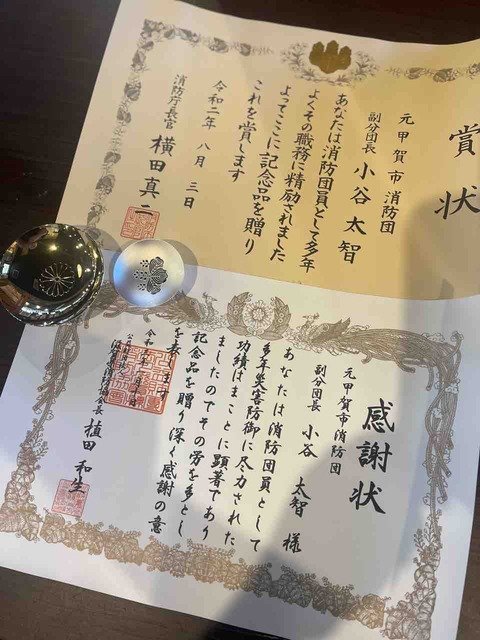 賞状
元甲賀市消防団
副分団長 小谷太智
あなたは消防団員として多年
よくその職務に精励されました
よってここに記念品を贈り
これを賞します
令和二年八月三日
消防庁長官 横田真二
感謝状
元甲賀市消防団
副分団長 小谷太智様
あなたは消防団員として
多年災害防御に尽力された
功績はまことに顕著であり
ましたのでその労を多とし
記念品を贈り深く感謝の意
を表します
令和
会長 植田和生